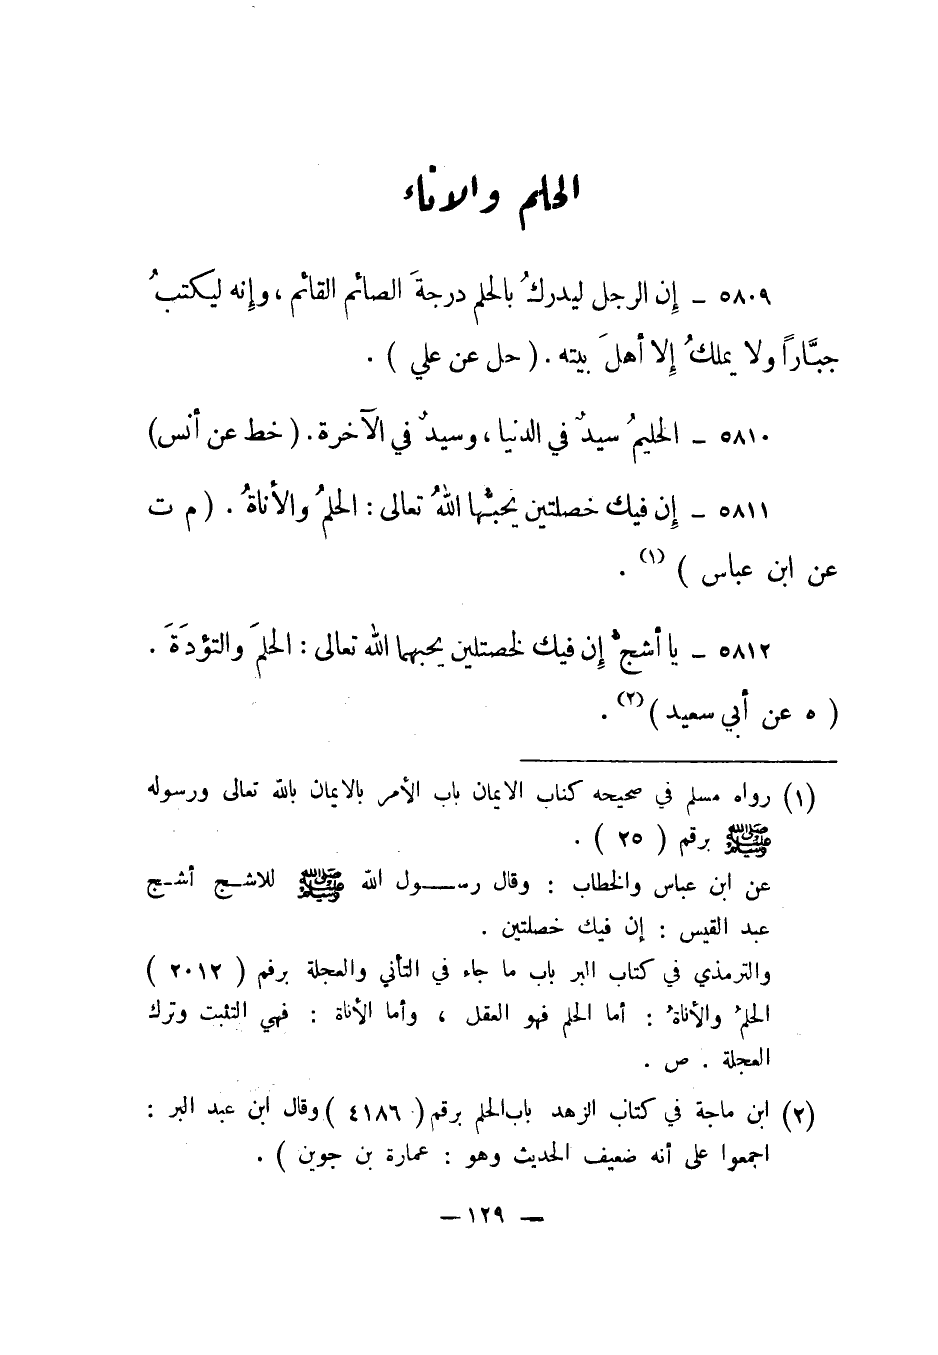 الحلم والاناء
٥٨٠٩ ـ إن الرجل ليدركُ بالحلم درجةَ الصائم القائم ، وإنه ليكتبُ
جبَّاراً ولا يملكُ إلا أهلَ بيته . ( حل عن علي ) .
٥٨١٠ ـ الحليمُ سيدٌ في الدنيا ، وسيدٌ في الآخرة . ( خط عن أنس )
٥٨١١ ـ إن فيك خصلتين يحبُّها اللهُ تعالى : الحلمُ والأناةُ . ( م ت
عن ابن عباس ) (١) .
٥٨١٢ ـ يا أشجُّ إن فيك لخصتلين يحبهما الله تعالى : الحلمَ والتؤدَةَ .
( ه عن أبي سعيد ) (٢) .
(١) رواه مسلم في صحيحه كتاب الايمان باب الأمر بالايمان بالله تعالى ورسوله
ﷺ برقم ( ٢٥ ) .
عن ابن عباس والخطاب : وقال رســـول الله ﷺ للاشـج أشـج
عبد القيس : إن فيك خصلتين .
والترمذي في كتاب البر باب ما جاء في التأني والعجلة برقم ( ٢٠١٢ )
الحلمُ والأناةُ : أما الحلم فهو العقل ، وأما الأناة : فهي التثبت وترك
العجلة . ص .
(٢) ابن ماجة في كتاب الزهد باب الحلم برقم ( ٤١٨٦ ) وقال ابن عبد البر :
اجمعوا على أنه ضعيف الحديث وهو : عمارة بن جوين ) .
— ١٢٩ —